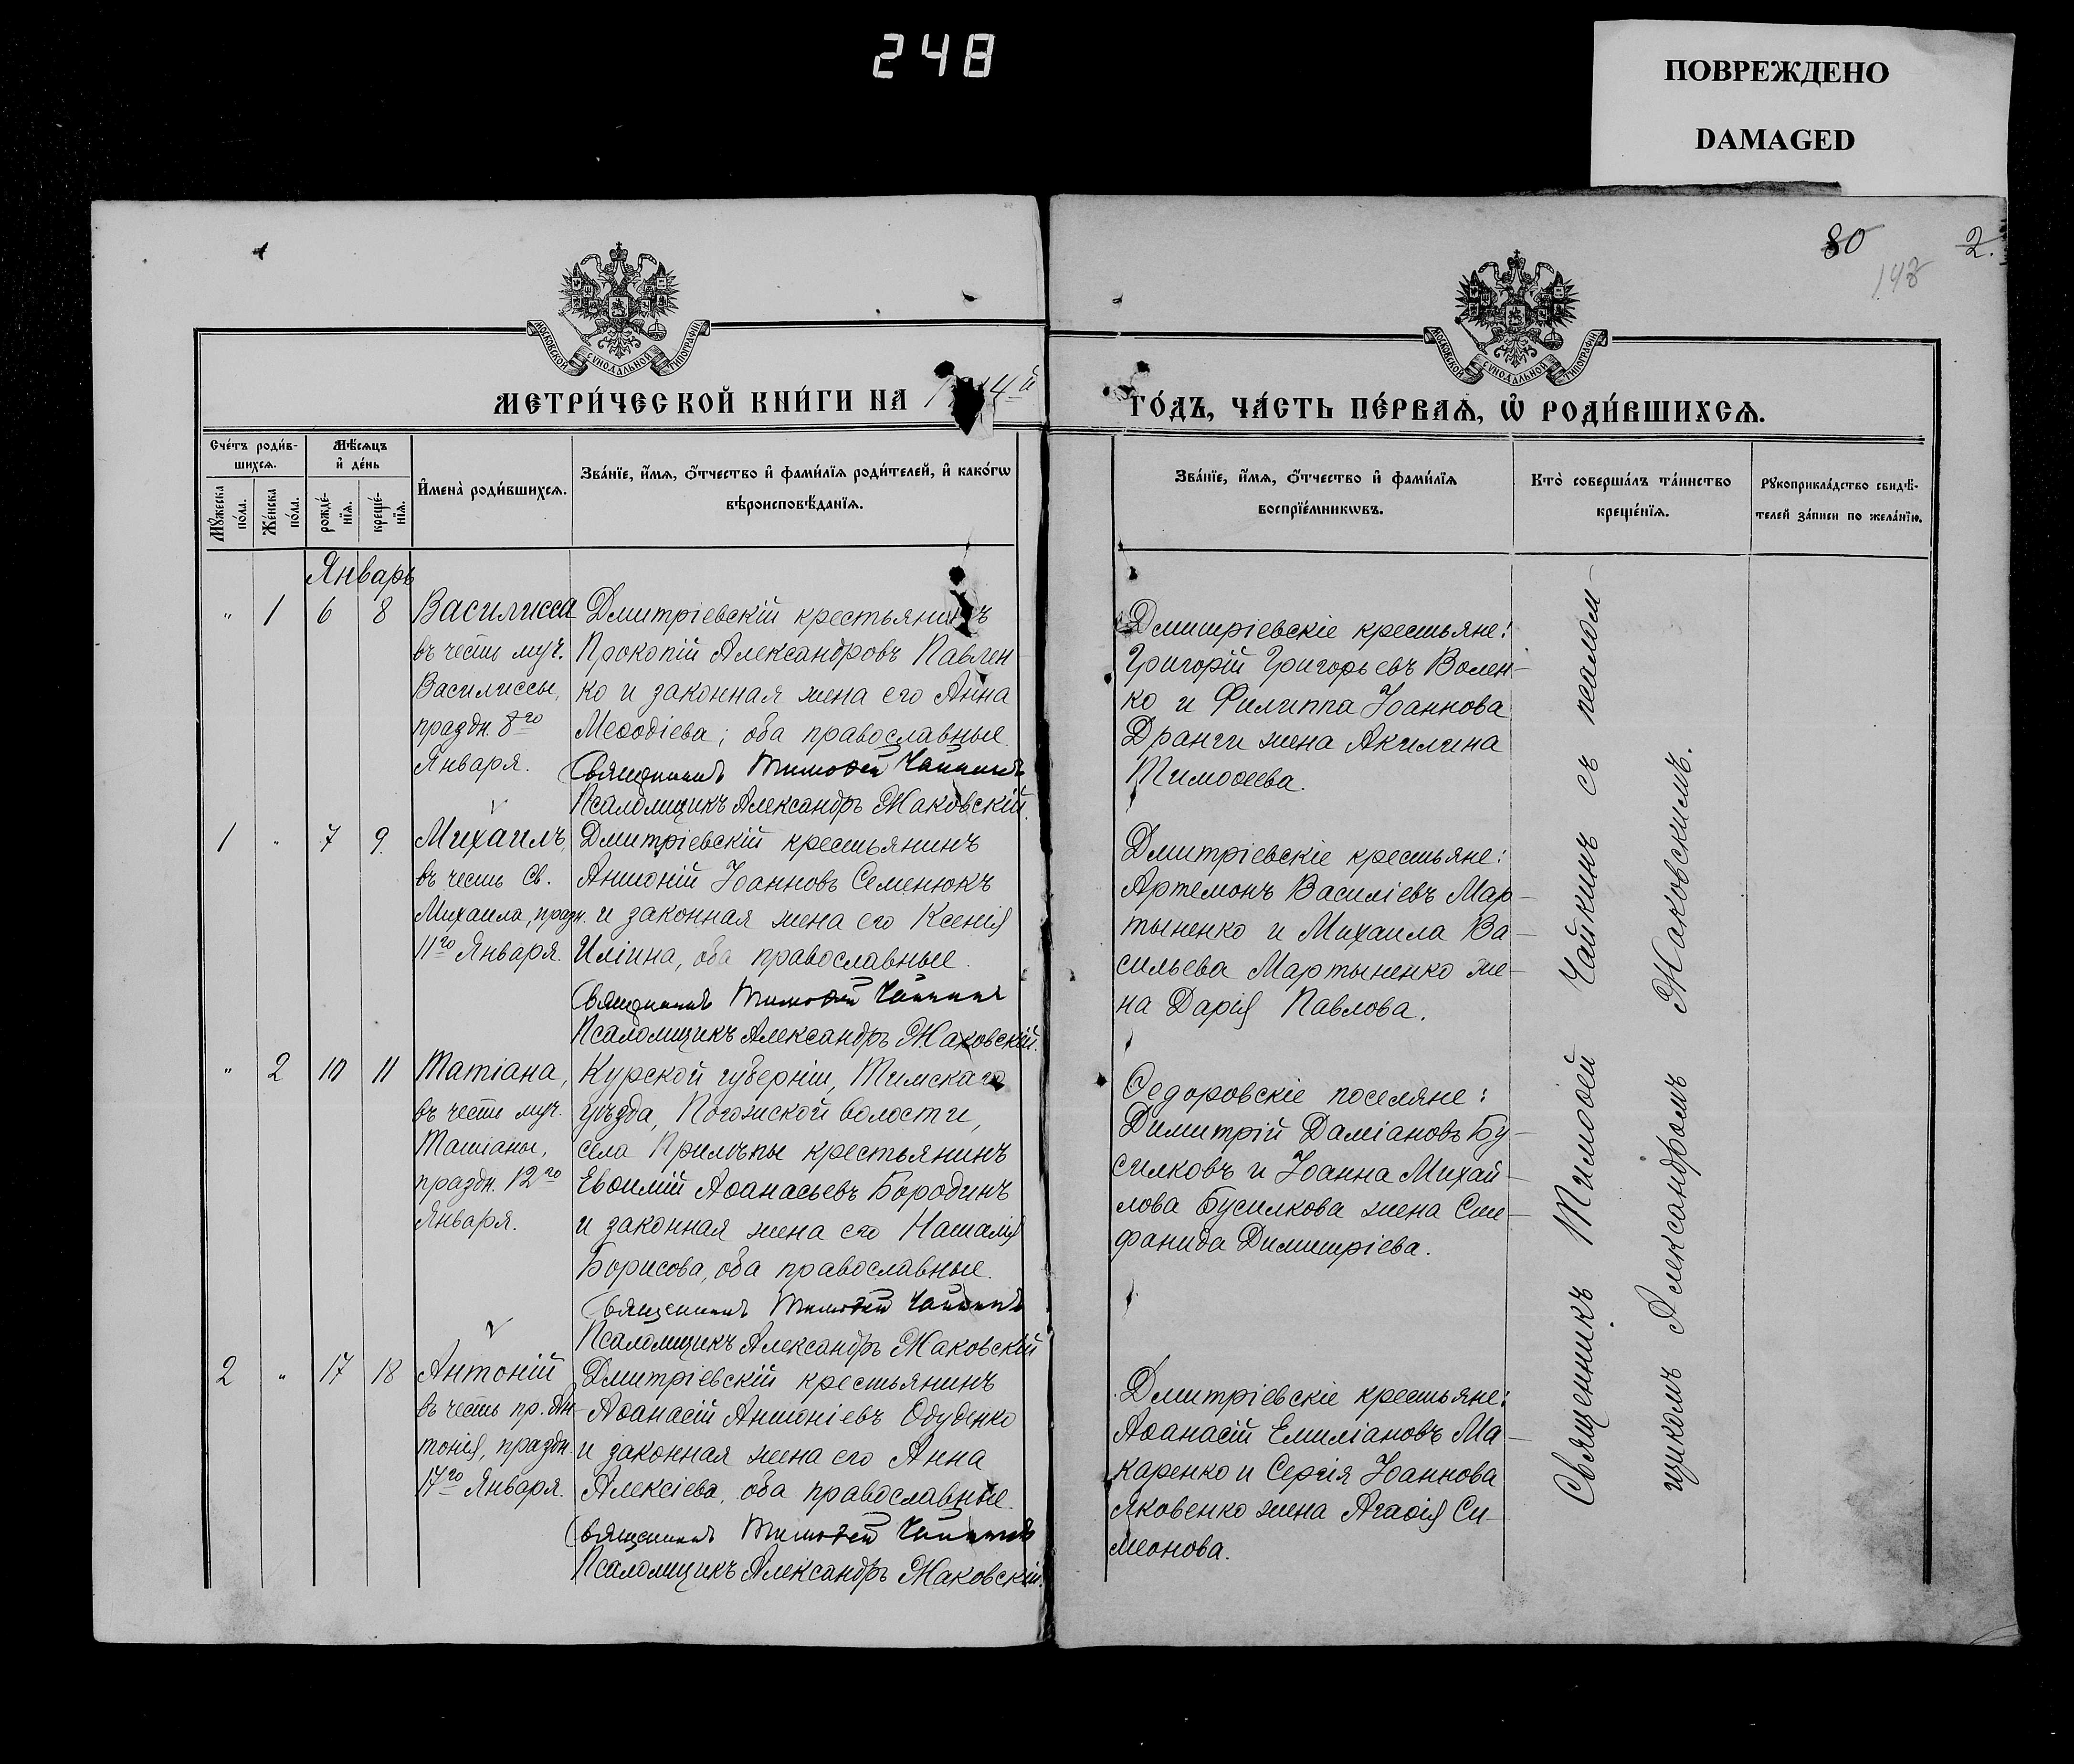 248
ПОВРЕЖДЕНО
DAMAGED
80
2.
148
МОСКОВСКОЙ СѴНОДАЛЬНОЙ ТИПОГРАФІИ
МОСКОВСКОЙ СѴНОДАЛЬНОЙ ТИПОГРАФІИ
МЕТРИ́ЧЕСКОЙ КНИ́ГИ НА 1914й
ГО́ДЪ, ЧА́СТЬ ПЕ́РВАѦ, Ѡ҆ РОДИ́ВШИХСѦ.
Сче́тъ роди́в-
шихсѧ.
Мѣ́сѧцъ
и҆ де́нь
Мꙋ́жеска
по́ла.
Же́нска
по́ла.
рожде́-
нїѧ.
креще́-
нїѧ.
И҆мена̀ роди́вшихсѧ.
Зва́нїе, и҆́мѧ, ѻ҆́тчество и҆ фами́лїѧ роди́телей, и҆ како́гѡ
вѣроисповѣ́данїѧ.
Зва́нїе, и҆́мѧ, ѻ҆́тчество и҆ фами́лїѧ
воспрїе́мникѡвъ.
Кто̀ соверша́лъ та́инство
креще́нїѧ.
Рꙋкоприкла́дство свидѣ́-
телей за́писи по жела́нїю.
Январь
" 1 6 8
Василисса
въ честь муч.
Василиссы,
праздн. 8го
Января.
Дмитріевскій крестьянинъ
Прокопій Александровъ Павлен
ко и законная жена его Анна
Меѳодіева; оба православные.
Священникъ Тимоѳей Чайкинъ
Псаломщикъ Александръ Жаковскій.
Дмитріевскіе крестьяне:
Григорій Григорьевъ Волен-
ко и Филиппа Іоаннова
Дранги жена Акилина
Тимоѳеева.
1 " 7 9.
Михаилъ,
въ честь Св.
Михаила, празн.
11го Января.
Дмитріевскій крестьянинъ
Антоній Іоанновъ Семенюкъ
и законная жена его Ксенія
Иліина, оба православные.
Священникъ Тимоѳей Чайкинъ
Псаломщикъ Александръ Жаковскій.
Дмитріевскіе крестьяне:
Артемонъ Василіевъ Мар-
тыненко и Михаила Ва-
сильева Мартыненко же-
на Дарія Павлова.
" 2 10 11
Татіана,
въ честь муч.
Татіаны,
праздн. 12го
Января.
Курской губерніи, Тимскаго
уѣзда, Погожской волости,
села Прилѣпы крестьянинъ
Евѳимій Аѳанасьевъ Бородинъ
и законная жена его Наталія
Борисова, оба православные.
Священникъ Тимоѳей Чайкинъ
Псаломщикъ Александръ Жаковскій
Ѳедоровскіе поселяне:
Димитрій Даміановъ Бу-
силковъ и Іоанна Михай-
лова Бусилкова жена Сте-
фанида Димитріева.
2 " 17 18
Антоній
въ честь пр. Ан-
тонія, праздн.
17го Января.
Дмитріевскій крестьянинъ
Аѳанасій Антоніевъ Одуденко
и законная жена его Анна
Алексіева, оба православные.
Священникъ Тимоѳей Чайкинъ
Псаломщикъ Александръ Жаковскій.
Дмитріевскіе крестьяне:
Аѳанасій Емиліановъ Ма-
каренко и Сергія Іоаннова
Яковенко жена Агаѳія Си-
меонова.
Священникъ Тимоѳей Чайкинъ съ псалом-
щикомъ Александромъ Жаковскимъ.